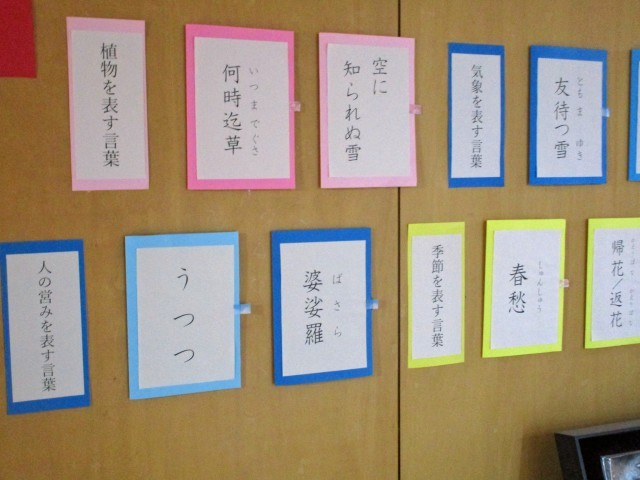 植物を表す言葉
何時迄草
いつまでぐさ
空に
知られぬ雪
気象を表す言葉
友待つ雪
ともまゆき
人の営みを表す言葉
うつつ
婆娑羅
ばさら
季節を表す言葉
春愁
しゅんしゅう
帰花/返花